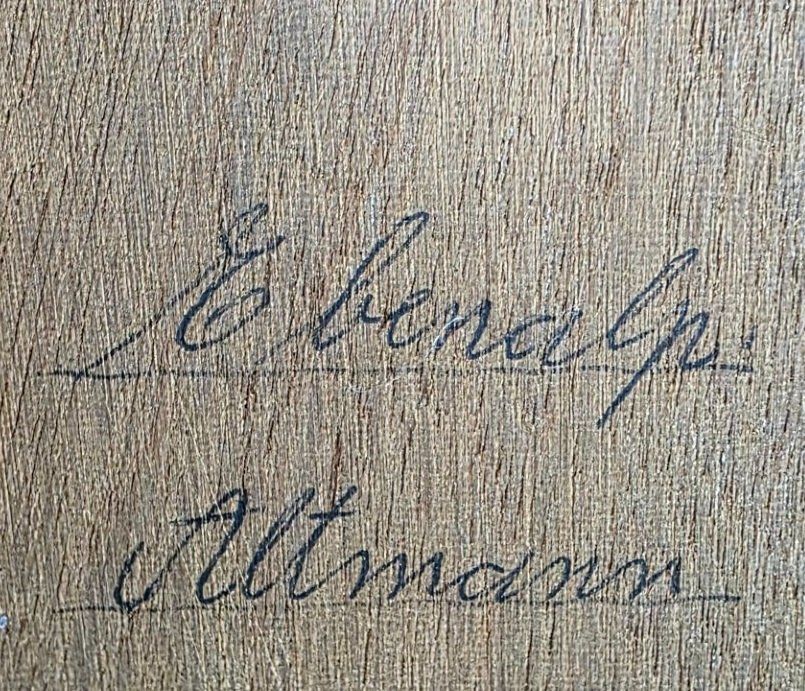 Ebenalp.
Altmann